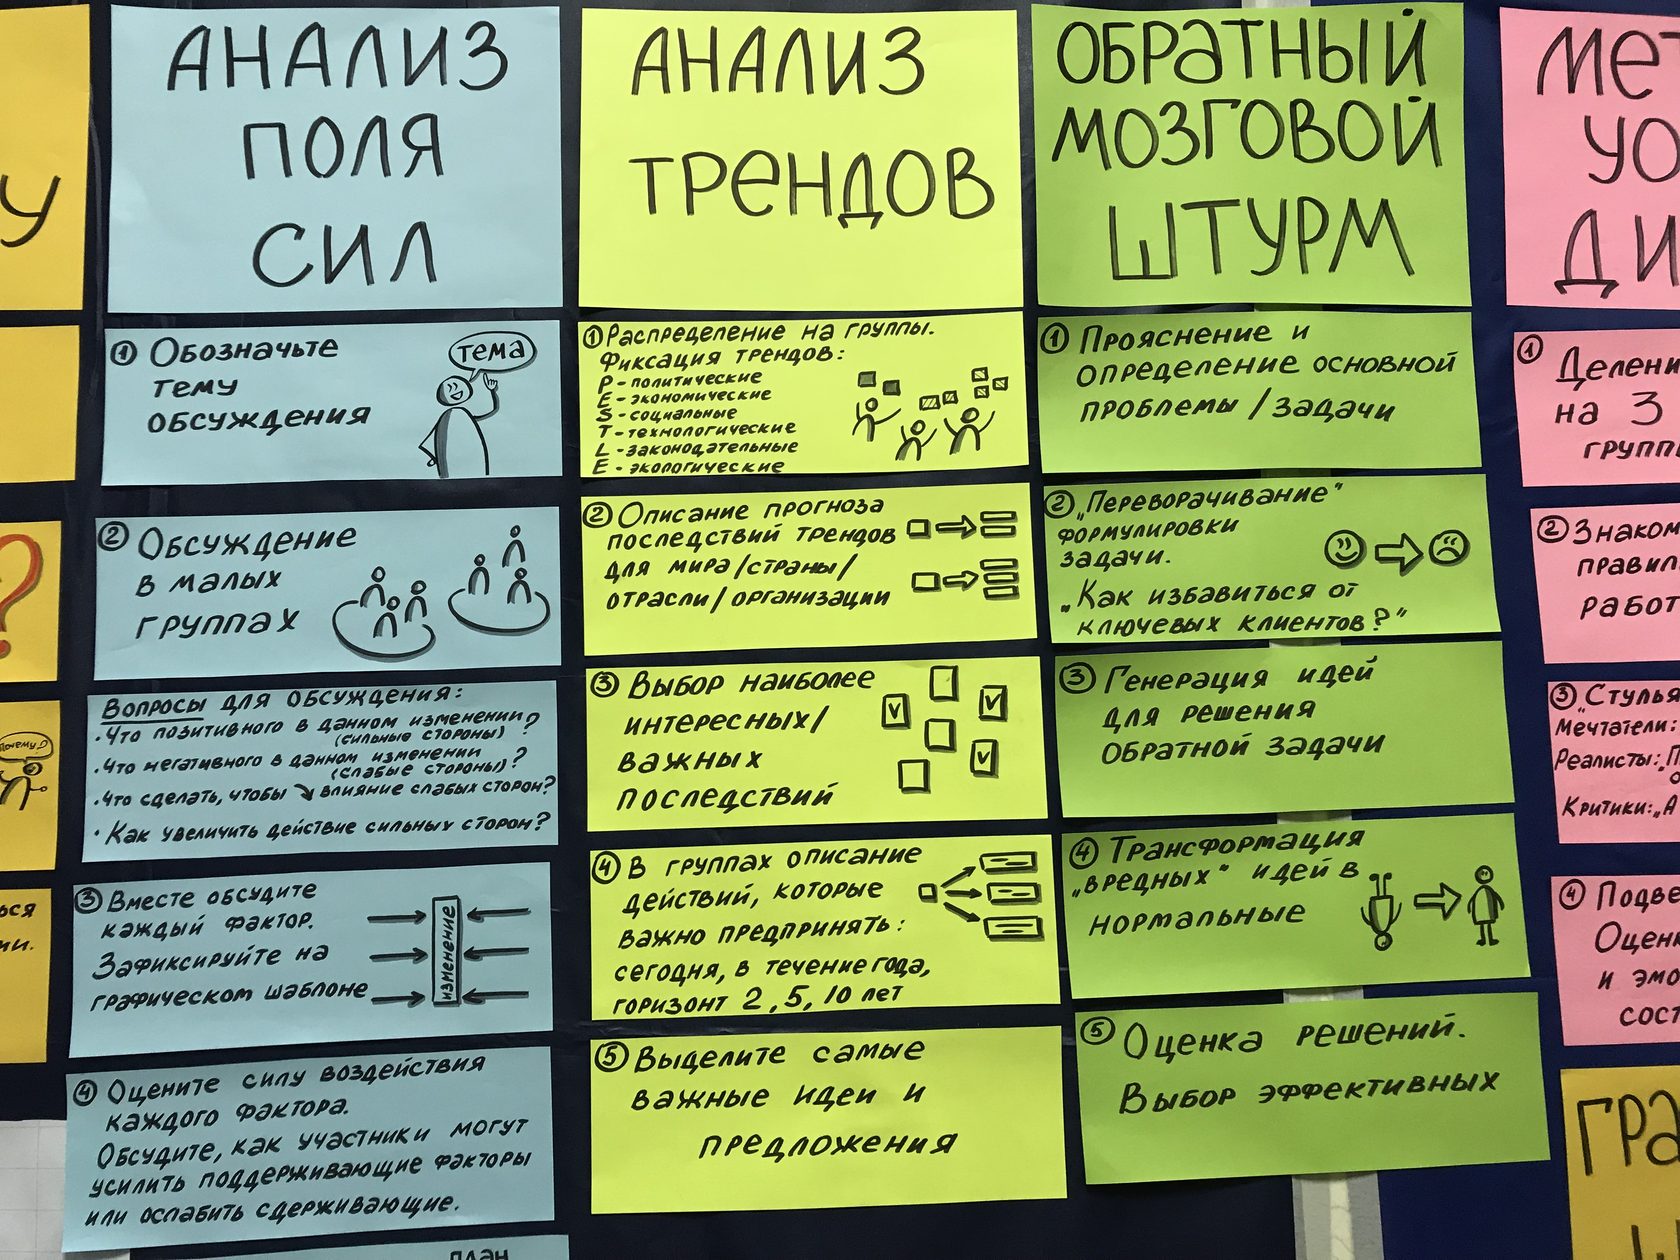 У
Почему?
ься
ми.
АНАЛИЗ
ПОЛЯ
СИЛ
① Обозначьте
тему
обсуждения
тема
② Обсуждение
в малых
группах
Вопросы для обсуждения:
• Что позитивного в данном изменении?
(сильные стороны)
• Что негативного в данном изменении
(слабые стороны)?
• Что сделать, чтобы ↘ влияние слабых сторон?
• Как увеличить действие сильных сторон?
③ Вместе обсудите
каждый фактор.
Зафиксируйте на
графическом шаблоне
изменение
④ Оцените силу воздействия
каждого фактора.
Обсудите, как участники могут
усилить поддерживающие факторы
или ослабить сдерживающие.
план
АНАЛИЗ
ТРЕНДОВ
① Распределение на группы.
Фиксация трендов:
P - политические
E - экономические
S - социальные
T - технологические
L - законодательные
E - экологические
② Описание прогноза
последствий трендов
для мира/страны/
отрасли/организации
③ Выбор наиболее
интересных/
важных
последствий
④ В группах описание
действий, которые
важно предпринять:
сегодня, в течение года,
горизонт 2, 5, 10 лет
⑤ Выделите самые
важные идеи и
предложения
ОБРАТНЫЙ
МОЗГОВОЙ
ШТУРМ
① Прояснение и
определение основной
проблемы / задачи
② „Переворачивание"
формулировки
задачи.
„Как избавиться от
ключевых клиентов?"
③ Генерация идей
для решения
обратной задачи
④ Трансформация
„вредных" идей в
нормальные
⑤ Оценка решений.
Выбор эффективных
МЕТ
УО
ДИ
① Делени
на 3
групп
② Знаком
правил
работ
③ „Стулья
Мечтатели:
Реалисты: „П
о
Критики: „А
④ Подве
Оценк
и эмо
сост
ГРА